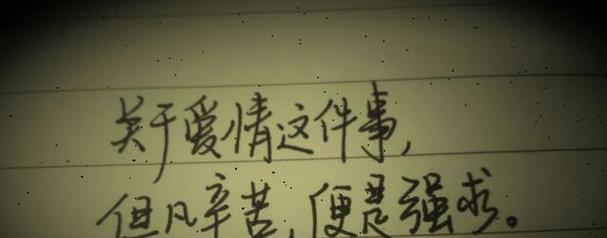 关于爱情这件事,
但凡辛苦,便是强求。